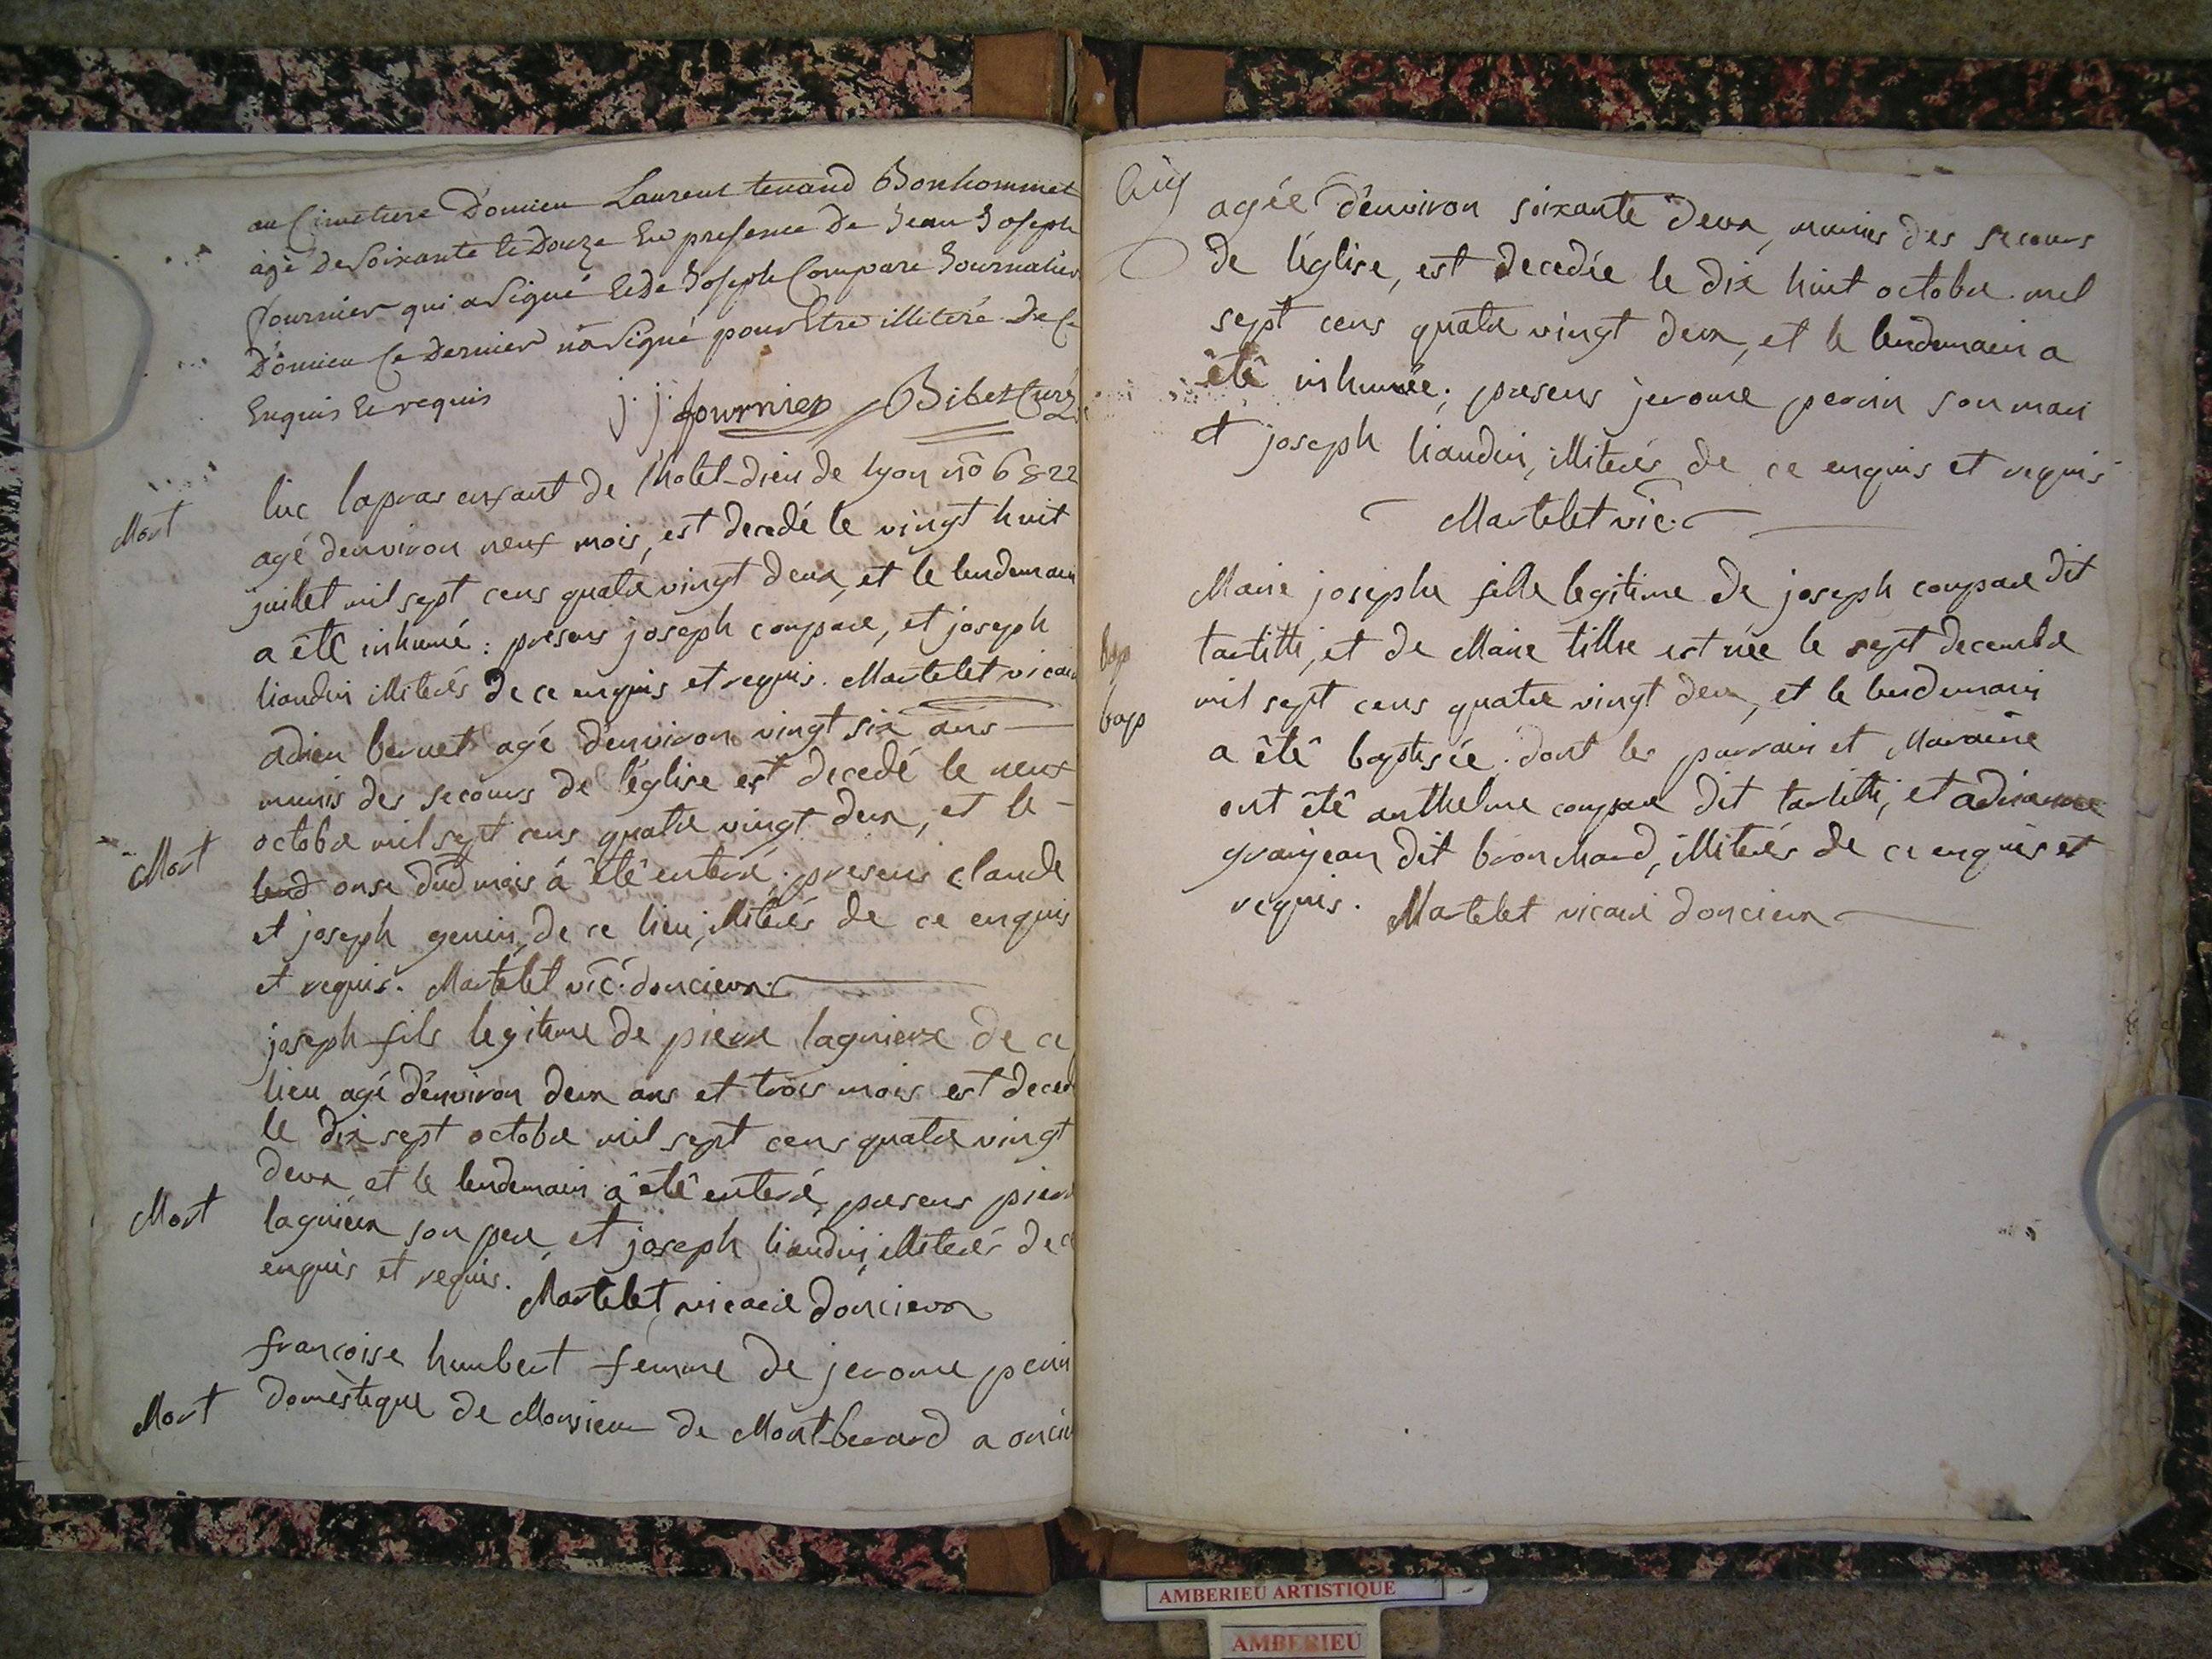 au Cimetiere D'oncieu Laurent tenand Bonhommet
agé de Soixante et Douze En presence de Jean Joseph
fournier qui a Signé et de Joseph Compare Journalier
D'oncieu Ce Dernier n'a Signé pour Etre illiteré De Ce
Enquis et requis j. j. fournier Bibet Curé
Mort
luc lapras enfant de l'hotel-dieu de lyon no 6822
agé denviron neuf mois, est decedé le vingt huit
juillet mil sept cens quatre vingt deux, et le lendemain
a êtê inhumé : presens joseph compare, et joseph
liaudin illiterés de ce enquis et requis. Martelet vicair
adrien bernet agé d'environ vingt six ans
munis des secours de l'église est decedé le neuf
octobre mil sept cens quatre vingt deux, et le
Mort
lend onse dud mois â êtê enteré. presens claude
et joseph genin, de ce lieu, illiterés de ce enquis
et requis. Martelet vic. doncieux
joseph fils legitime de pierre lagnieux de ce
lieu agé d'environ deux ans et trois mois est deced
le dix sept octobre mil sept cens quatre vingt
deux et le lendemain â êtê enteré, presens pierre
Mort
lagnieux son pere, et joseph liaudin, illiterés de ce
enquis et requis. Martelet, vicaire doncieux
françoise humbert femme de jerome perin
Mort
domèstique de Monsieur de Montberard a oncieu
agée d'environ soixante deux, munies des secours
de l'église, est decedée le dix huit octobre mil
sept cens quatre vingt deux, et le lendemain a
êtê inhumée ; presens jerome perrin son mari
et joseph liaudin, illiterés de ce enquis et requis
Martelet vic.
Marie josephe fille legitime de joseph compare dit
bap
tartitti, et de Marie tillie est née le sept decembre
mil sept cens quatre vingt deux, et le lendemain
bap
a êtê baptisée. dont les parrain et Maraine
ont êtê anthelme compare dit tartitti, et adrianne
granjean dit bronchard, illiterés de ce enquis et
requis. Martelet vicaire doncieux
AMBERIEU ARTISTIQUE
AMBERIEU